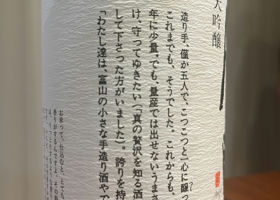 大吟醸
造り手、僅か五人で、こつこつと一心に醸っ
これまでも、そうでした。これからも、
年に少量。でも、量産では出せないうまさ
け、守ってゆきたい(「真の贅沢を知る酒
して下さった方がいました)。誇りを持
「わたし達は、富山の小さな手造り酒やで